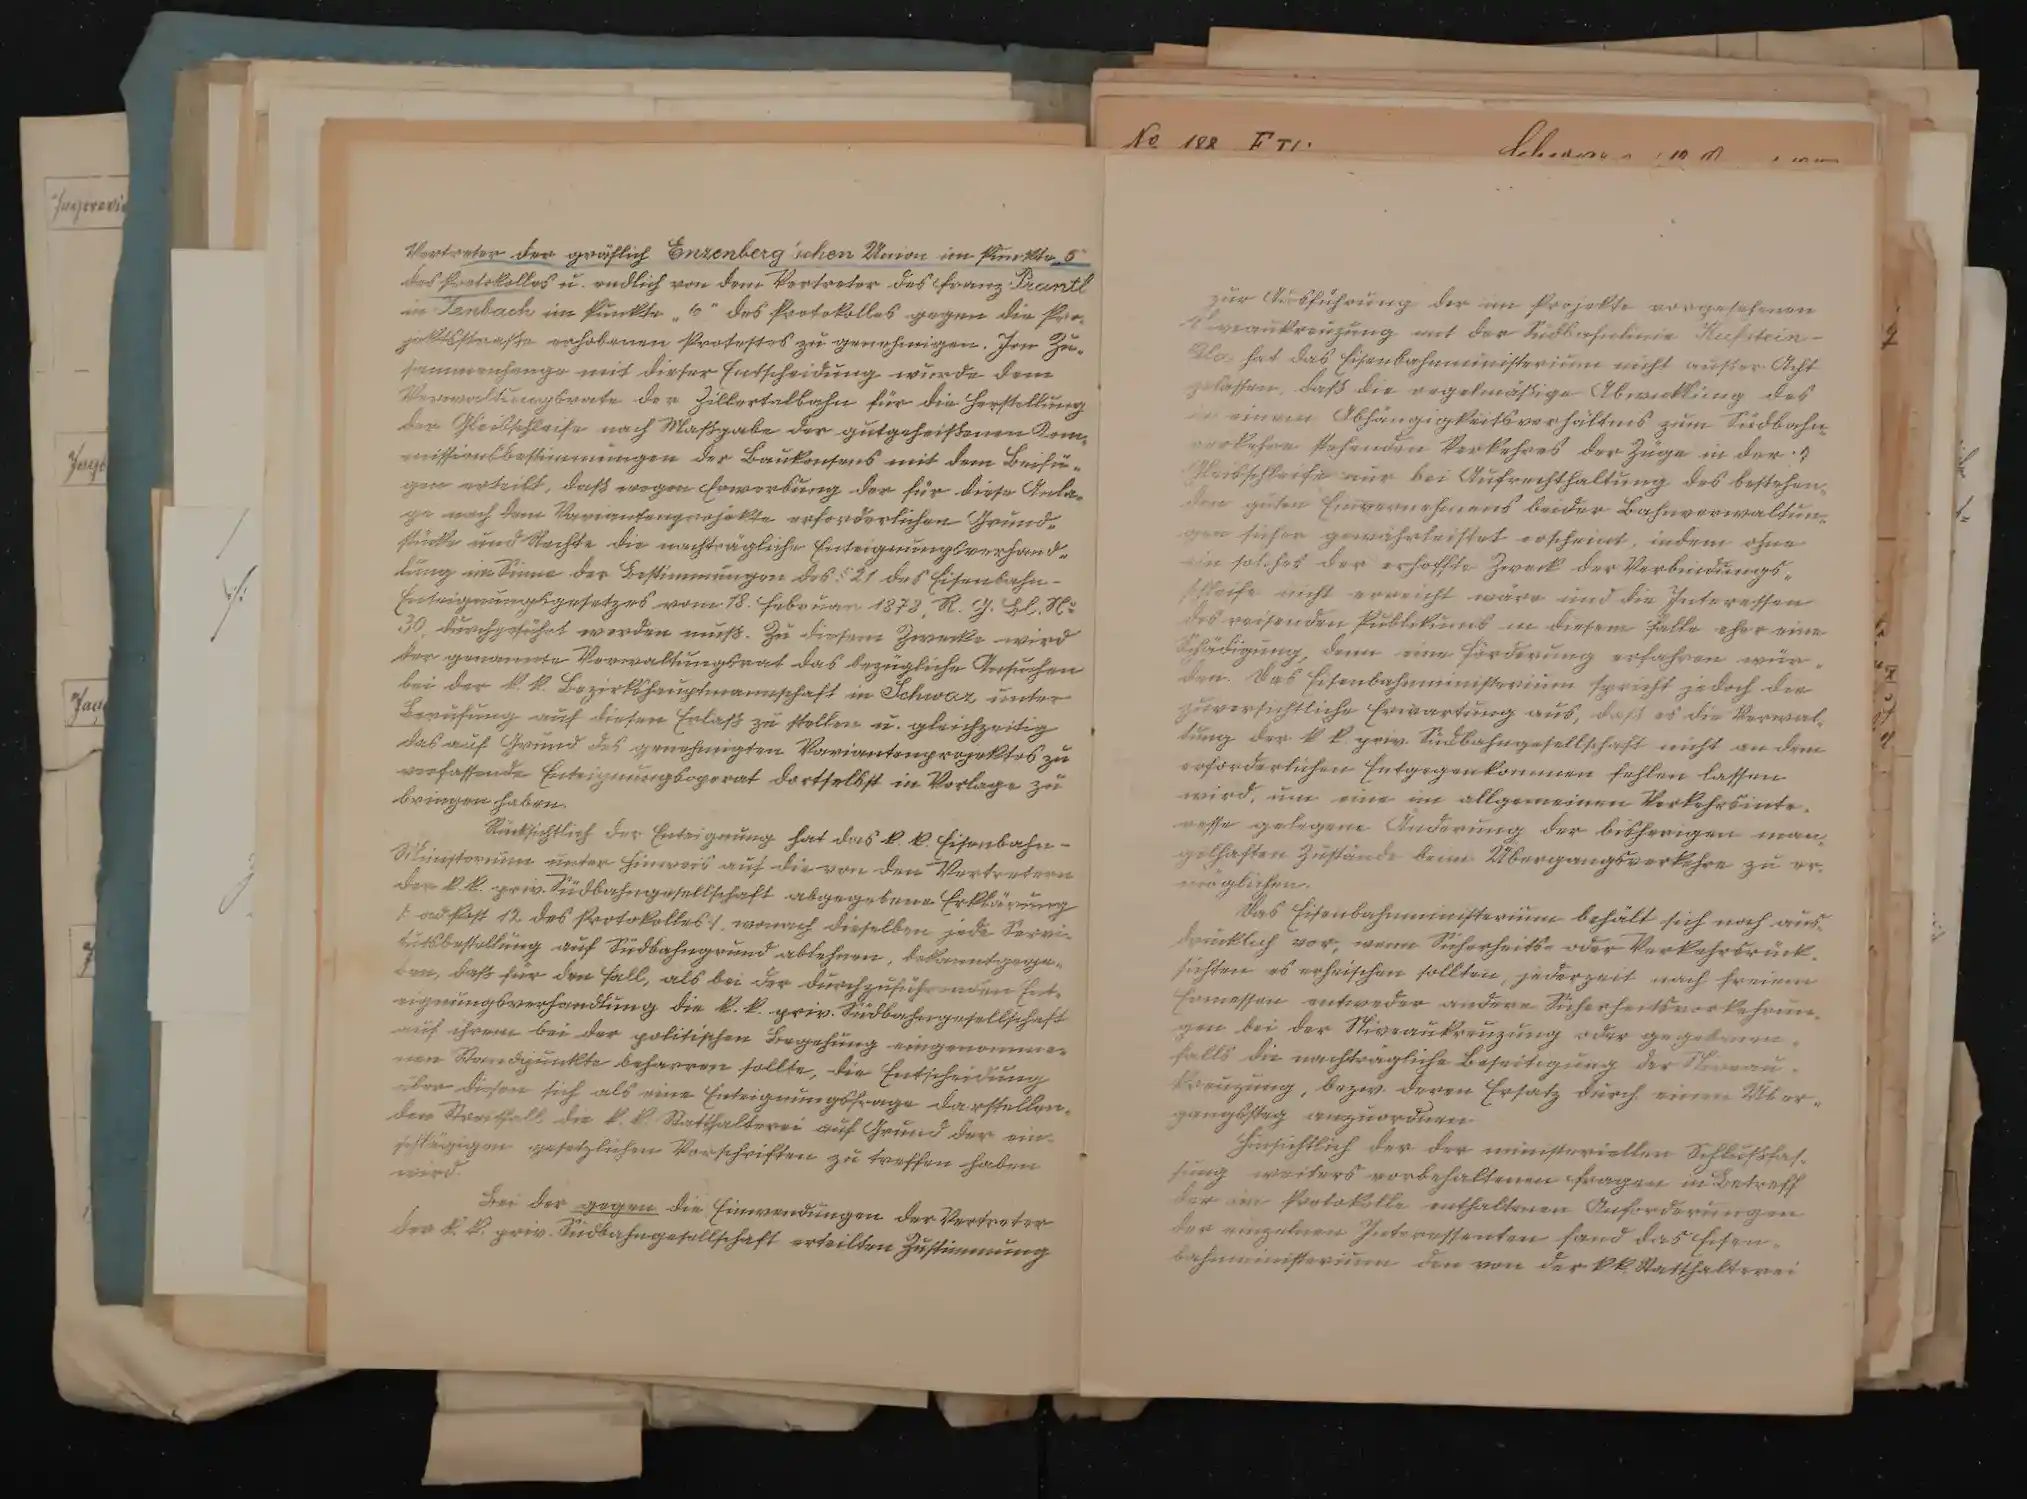 Jagdrevie
No 188
Vertreter der gräflich Enzenberg'schen Union im Punkte 5
des Protokolles u. endlich von dem Vertreter des Franz Prantl
in Jenbach im Punkte „6" des Protokolles gegen die Pro-
jektsstraße erhobenen Protestes zu genehmigen. Im Zu-
sammenhange mit dieser Entscheidung wurde dem
Verwaltungsrate der Zillertalbahn für die Herstellung
der Gleisschleife nach Maßgabe der gutgeheißenen Kom-
missionsbestimmungen der Baukonsens mit dem Beifü-
gen erteilt, daß wegen Erwerbung der für diese Anla-
ge nach dem Variantenprojekte erforderlichen Grund-
stücke und Rechte die nachträgliche Enteignungsverhand-
lung im Sinne der Bestimmungen des § 21 des Eisenbahn-
Enteignungsgesetzes vom 18. Februar 1878, R. G. Bl. No
30, durchgeführt werden muß. Zu diesem Zwecke wird
der genannte Verwaltungsrat das bezügliche Ansuchen
bei der k. k. Bezirkshauptmannschaft in Schwaz unter
Berufung auf diesen Erlaß zu stellen u. gleichzeitig
das auf Grund des genehmigten Variantenprojektes zu
verfassende Enteignungsoperat dortselbst in Vorlage zu
bringen haben.
Rücksichtlich der Enteignung hat das k. k. Eisenbahn-
Ministerium unter Hinweis auf die von den Vertretern
der k. k. priv. Südbahngesellschaft abgegebene Erklärung
/: ad Post 12 des Protokolles :/, wonach dieselben jede Servi-
tutsbestellung auf Südbahngrund ablehnen, bekanntgege-
ben, daß für den Fall, als bei der durchzuführenden Ent-
eignungsverhandlung die k. k. priv. Südbahngesellschaft
auf ihrem bei der politischen Begehung eingenomme-
nen Standpunkte beharren sollte, die Entscheidung
über diesen sich als eine Enteignungsfrage darstellen-
den Streitfall die k. k. Statthalterei auf Grund der ein-
schlägigen gesetzlichen Vorschriften zu treffen haben
wird.
Bei der gegen die Einwendungen der Vertreter
der k. k. priv. Südbahngesellschaft erteilten Zustimmung
zur Ausführung der im Projekte vorgesehenen
Niveaukreuzung mit der Südbahnlinie Kufstein-
Ala hat das Eisenbahnministerium nicht außer Acht
gelassen, daß die regelmäßige Abwicklung des
in einem Abhängigkeitsverhältnis zum Südbahn-
verkehre stehenden Verkehres der Züge in der
Gleisschleife nur bei Aufrechthaltung des bestehen-
den guten Einvernehmens beider Bahnverwaltun-
gen sicher gewährleistet erscheint, indem ohne
ein solches der erhoffte Zweck der Verbindungs-
schleife nicht erreicht wäre und die Interessen
des reisenden Publikums in diesem Falle eher eine
Schädigung, denn eine Förderung erfahren wür-
den. Das Eisenbahnministerium spricht jedoch die
zuversichtliche Erwartung aus, daß es die Verwal-
tung der k. k. priv. Südbahngesellschaft nicht an dem
erforderlichen Entgegenkommen fehlen lassen
wird, um eine im allgemeinen Verkehrsinte-
resse gelegene Änderung der bisherigen man-
gelhaften Zustände beim Übergangsverkehre zu er-
möglichen.
Das Eisenbahnministerium behält sich noch aus-
drücklich vor, wenn Sicherheits- oder Verkehrsrück-
sichten es erheischen sollten, jederzeit nach freiem
Ermessen entweder andere Sicherheitsvorkehrun-
gen bei der Niveaukreuzung oder gegebenen-
falls die nachträgliche Beseitigung der Niveau-
kreuzung, bezw. deren Ersatz durch einen Über-
gangssteg anzuordnen.
Hinsichtlich der der ministeriellen Schlußfas-
sung weiters vorbehaltenen Fragen in Betreff
der im Protokolle enthaltenen Anforderungen
der einzelnen Interessenten fand das Eisen-
bahnministerium den von der k. k. Statthalterei